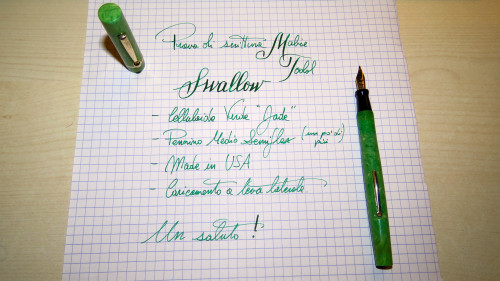 Prova di scrittura Mabie
Todd
Swallow
- Celluloide Verde "Jade"
- Pennino Medio Semiflex (un po' di più)
- Made in USA
- Caricamento a leva laterale
Un saluto!